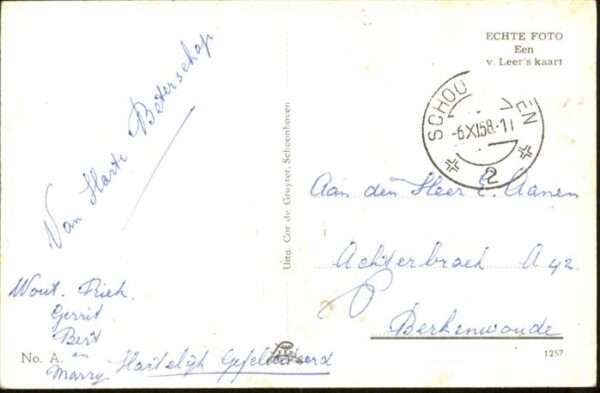 Van Harte Beterschap
Wout. Riek.
Gerrit
Bert
en
Marry
Hartelijk Gefeliciteerd
No. A.
Uitg. Cor de Gruyter, Schoonhoven
ECHTE FOTO
Een
v. Leer's kaart
SCHOO VEN
-6.XI.58.-11
2
Aan den Heer E. Aanen
Achterbroek A 42.
Berkenwoude
1257